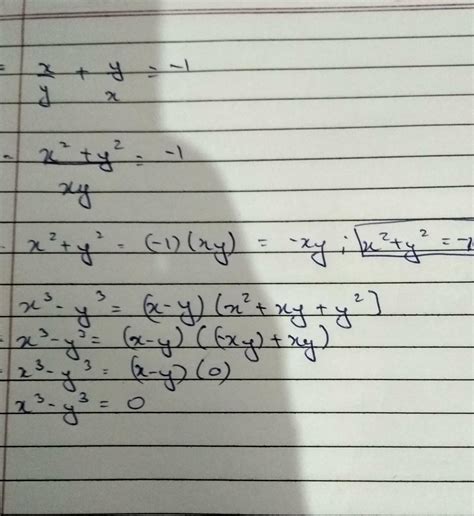 = x/y + y/x = -1
- x² + y² / xy = -1
. x² + y² = (-1)(xy) = -xy ; x² + y² = -x
x³ - y³ = (x-y)(x² + xy + y²]
- x³ - y³ = (x-y)((-xy) + xy)
- x³ - y³ = (x-y)(0)
x³ - y³ = 0